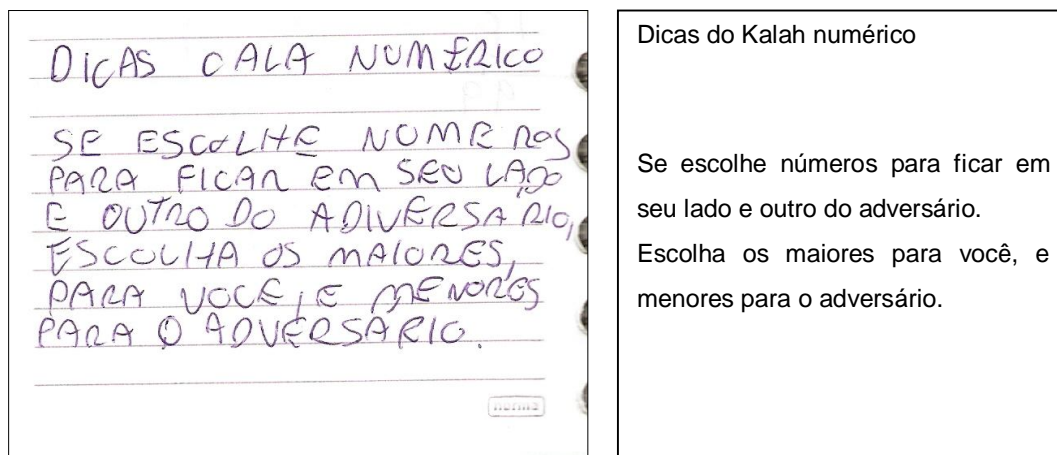 DICAS CALA NUMÉRICO
SE ESCOLHE NUMEROS
PARA FICAR EM SEU LADO
E OUTRO DO ADIVERSÁRIO,
ESCOLHA OS MAIORES,
PARA VOCE, E MENORES
PARA O ADVERSARIO.
norma
Dicas do Kalah numérico
Se escolhe números para ficar em
seu lado e outro do adversário.
Escolha os maiores para você, e
menores para o adversário.